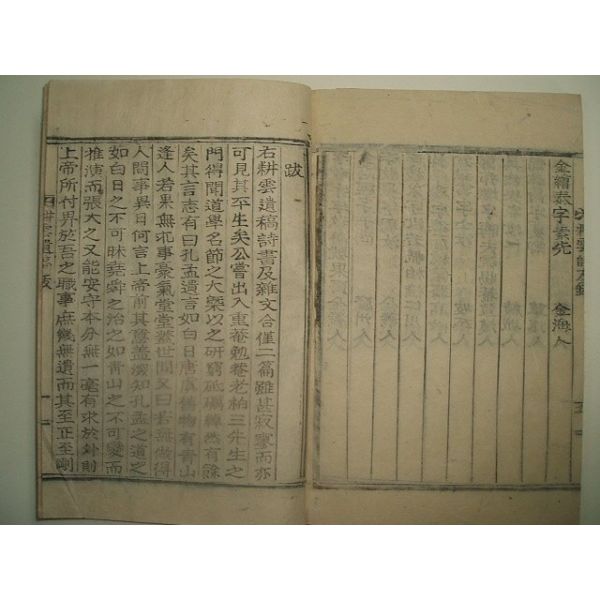 金 泰字素先 金海人
跋
右耕雲遺稿詩書及雜文合僅二篇雖甚寂寥而亦
可見其平生矣公嘗出入重菴勉菴老柏三先生之
門得聞道學名節之大槩以之研窮砥礪綽然有餘
矣其言志有曰孔孟遺言如白日唐虞舊物有靑山
逢人若果無邪事豪氣堂堂蓋世間又曰若無做得
人間事異日何言上帝前其意蓋孔孟之道之
如白日之不可昧堯舜之治之如青山之不可變而
推演而張大之又能安守本分無一毫有求於外則
上帝所付畀於吾之職事庶幾無遺而其至正至剛
耕雲遺稿 跋